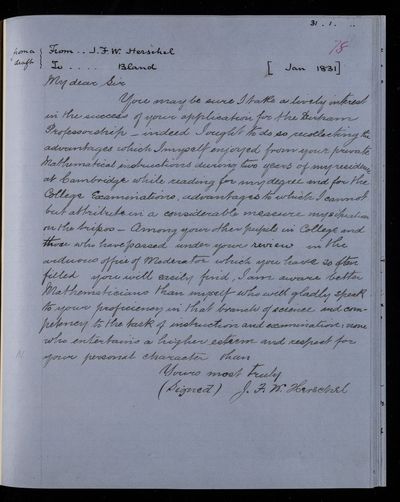 31 . 1 . ..
78
from a
draft
From .. J. F. W. Herschel
To ..... Bland [ Jan 1831]
My dear Sir
You may be sure I take a lively interest
in the success of your application for the Durham
Professorship - indeed I ought to do so, recollecting the
advantages which I myself enjoyed from your private
Mathematical instructions during two years of my residence
at Cambridge while reading for my degree and for the
College Examinations, advantages to which I cannot
but attribute in a considerable measure my situation
on the tripos - Among your other pupils in College and
those who have passed under your review in the
arduous office of Moderator which you have so often
filled you will easily find, I am aware better
Mathematicians than myself who will gladly speak
to your proficiency in that branch of science and com-
petency to the task of instruction and examination: none
who entertains a higher esteem and respect for
your personal character than
Yours most truly
(Signed) J. F. W. Herschel